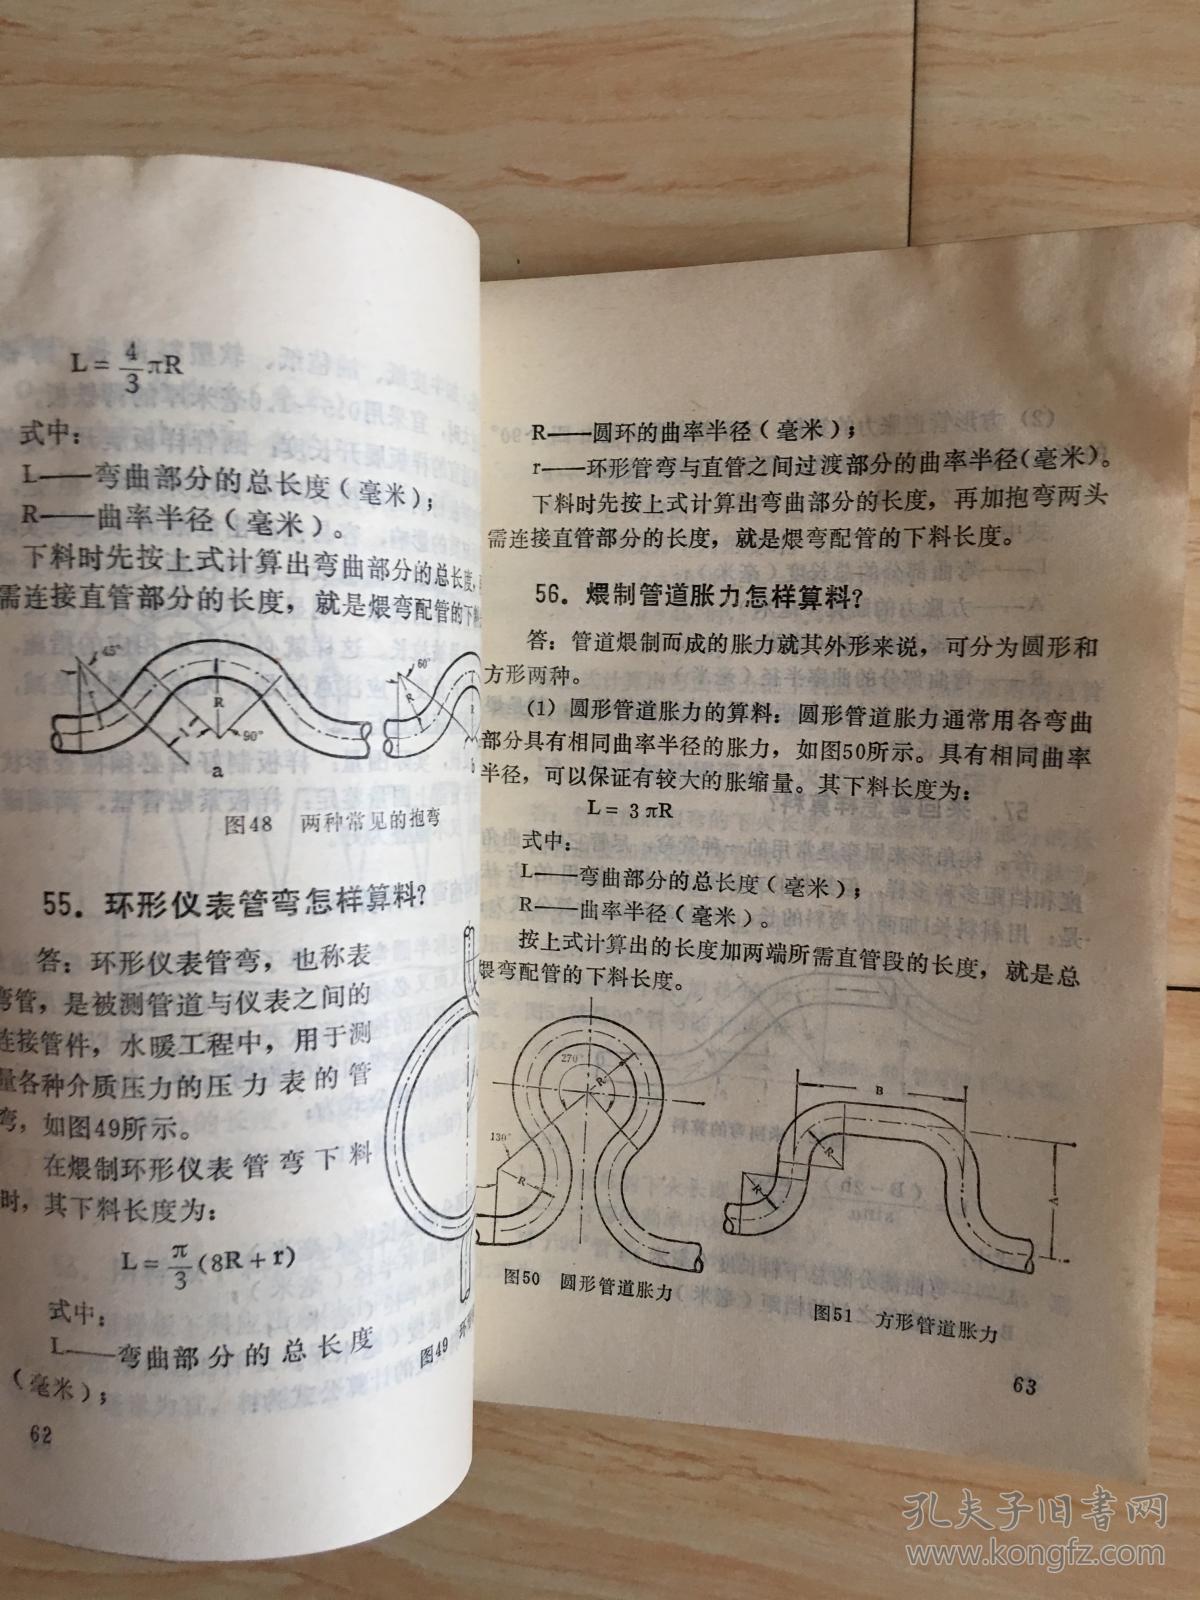 L=4/3πR
式中:
L——弯曲部分的总长度(毫米);
R——曲率半径(毫米)。
下料时先按上式计算出弯曲部分的总长度,
需连接直管部分的长度,就是煨弯配管的下
45°
R
90°
a
60°
R
图48 两种常见的抱弯
55.环形仪表管弯怎样算料?
答:环形仪表管弯,也称表
弯管,是被测管道与仪表之间的
连接管件,水暖工程中,用于测
量各种介质压力的压力表的管
弯,如图49所示。
在煨制环形仪表管弯下料
时,其下料长度为:
L=π/3(8R+r)
式中:
L——弯曲部分的总长度
(毫米);
图49 环
62
R——圆环的曲率半径(毫米);
r——环形管弯与直管之间过渡部分的曲率半径(毫米)。
下料时先按上式计算出弯曲部分的长度,再加抱弯两头
需连接直管部分的长度,就是煨弯配管的下料长度。
56.煨制管道胀力怎样算料?
答:管道煨制而成的胀力就其外形来说,可分为圆形和
方形两种。
(1)圆形管道胀力的算料:圆形管道胀力通常用各弯曲
部分具有相同曲率半径的胀力,如图50所示。具有相同曲率
半径,可以保证有较大的胀缩量。其下料长度为:
L=3πR
式中:
L——弯曲部分的总长度(毫米);
R——曲率半径(毫米)。
按上式计算出的长度加两端所需直管段的长度,就是总
煨弯配管的下料长度。
270°
R
130°
R
图50 圆形管道胀力
B
R
R
A
图51 方形管道胀力
63
孔夫子旧书网
www.kongfz.com